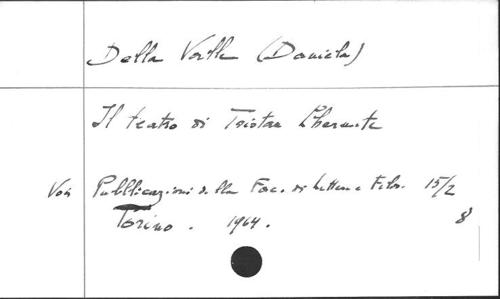 Della Valle (Daniela)
Il teatro di Tristan Lhermite
Voir Pubblicazioni della Fac. di Lettere e Filos. 15/2
Torino. 1964. 8